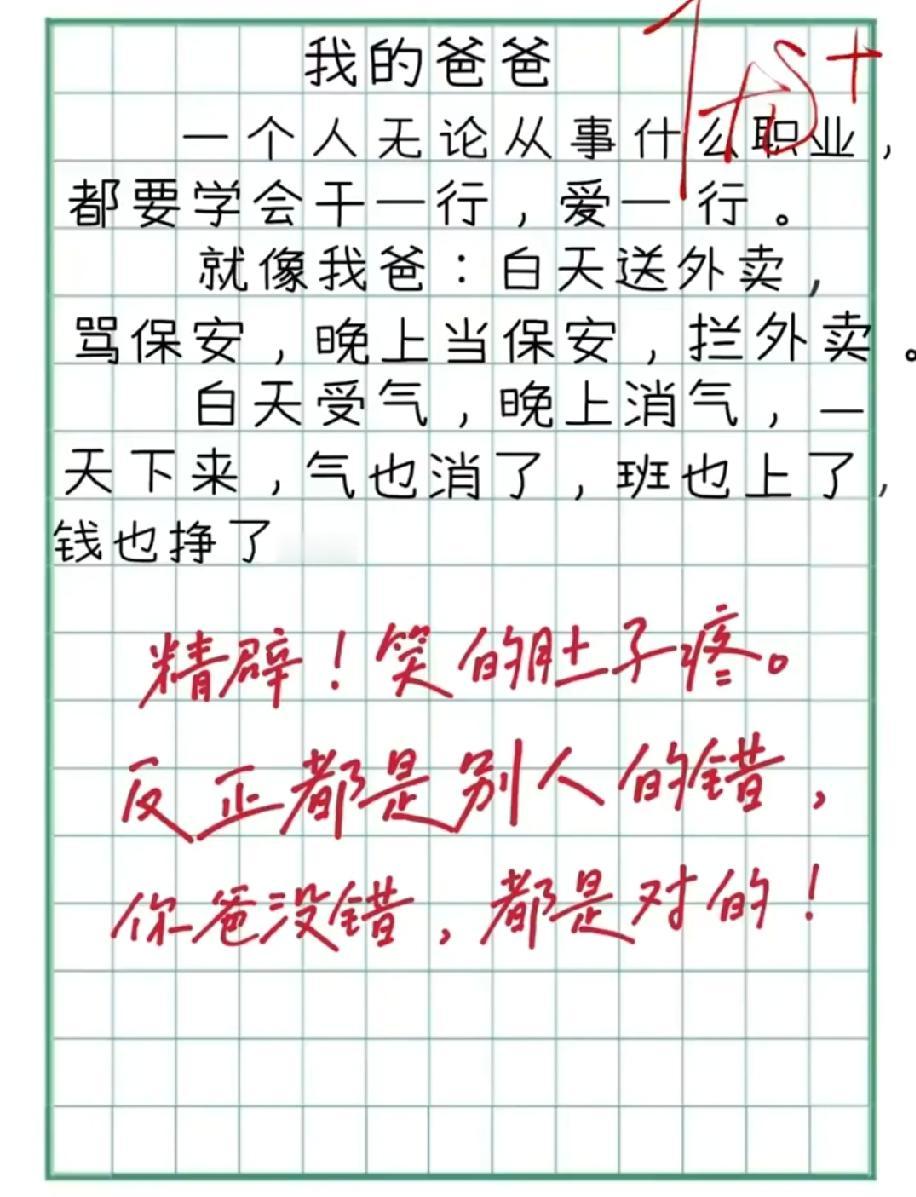 我的爸爸
一个人无论从事什么职业，
都要学会干一行，爱一行。
就像我爸：白天送外卖，
骂保安，晚上当保安，拦外卖。
白天受气，晚上消气，一
天下来，气也消了，班也上了，
钱也挣了
精辟！笑的肚子疼。
反正都是别人的错，
你爸没错，都是对的！